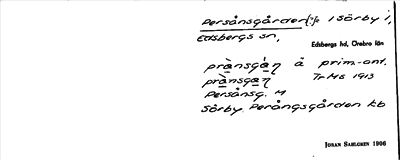 Persånsgården 1 Sörby i,
Edsbergs sn,
Edsbergs hd, Örebro län
prànsgàɳ å prim.-ant.
prànsgaɳ TrHS 1913
Persånsg. M
Sörby. Perångsgården kb
JÖRAN SAHLGREN 1906